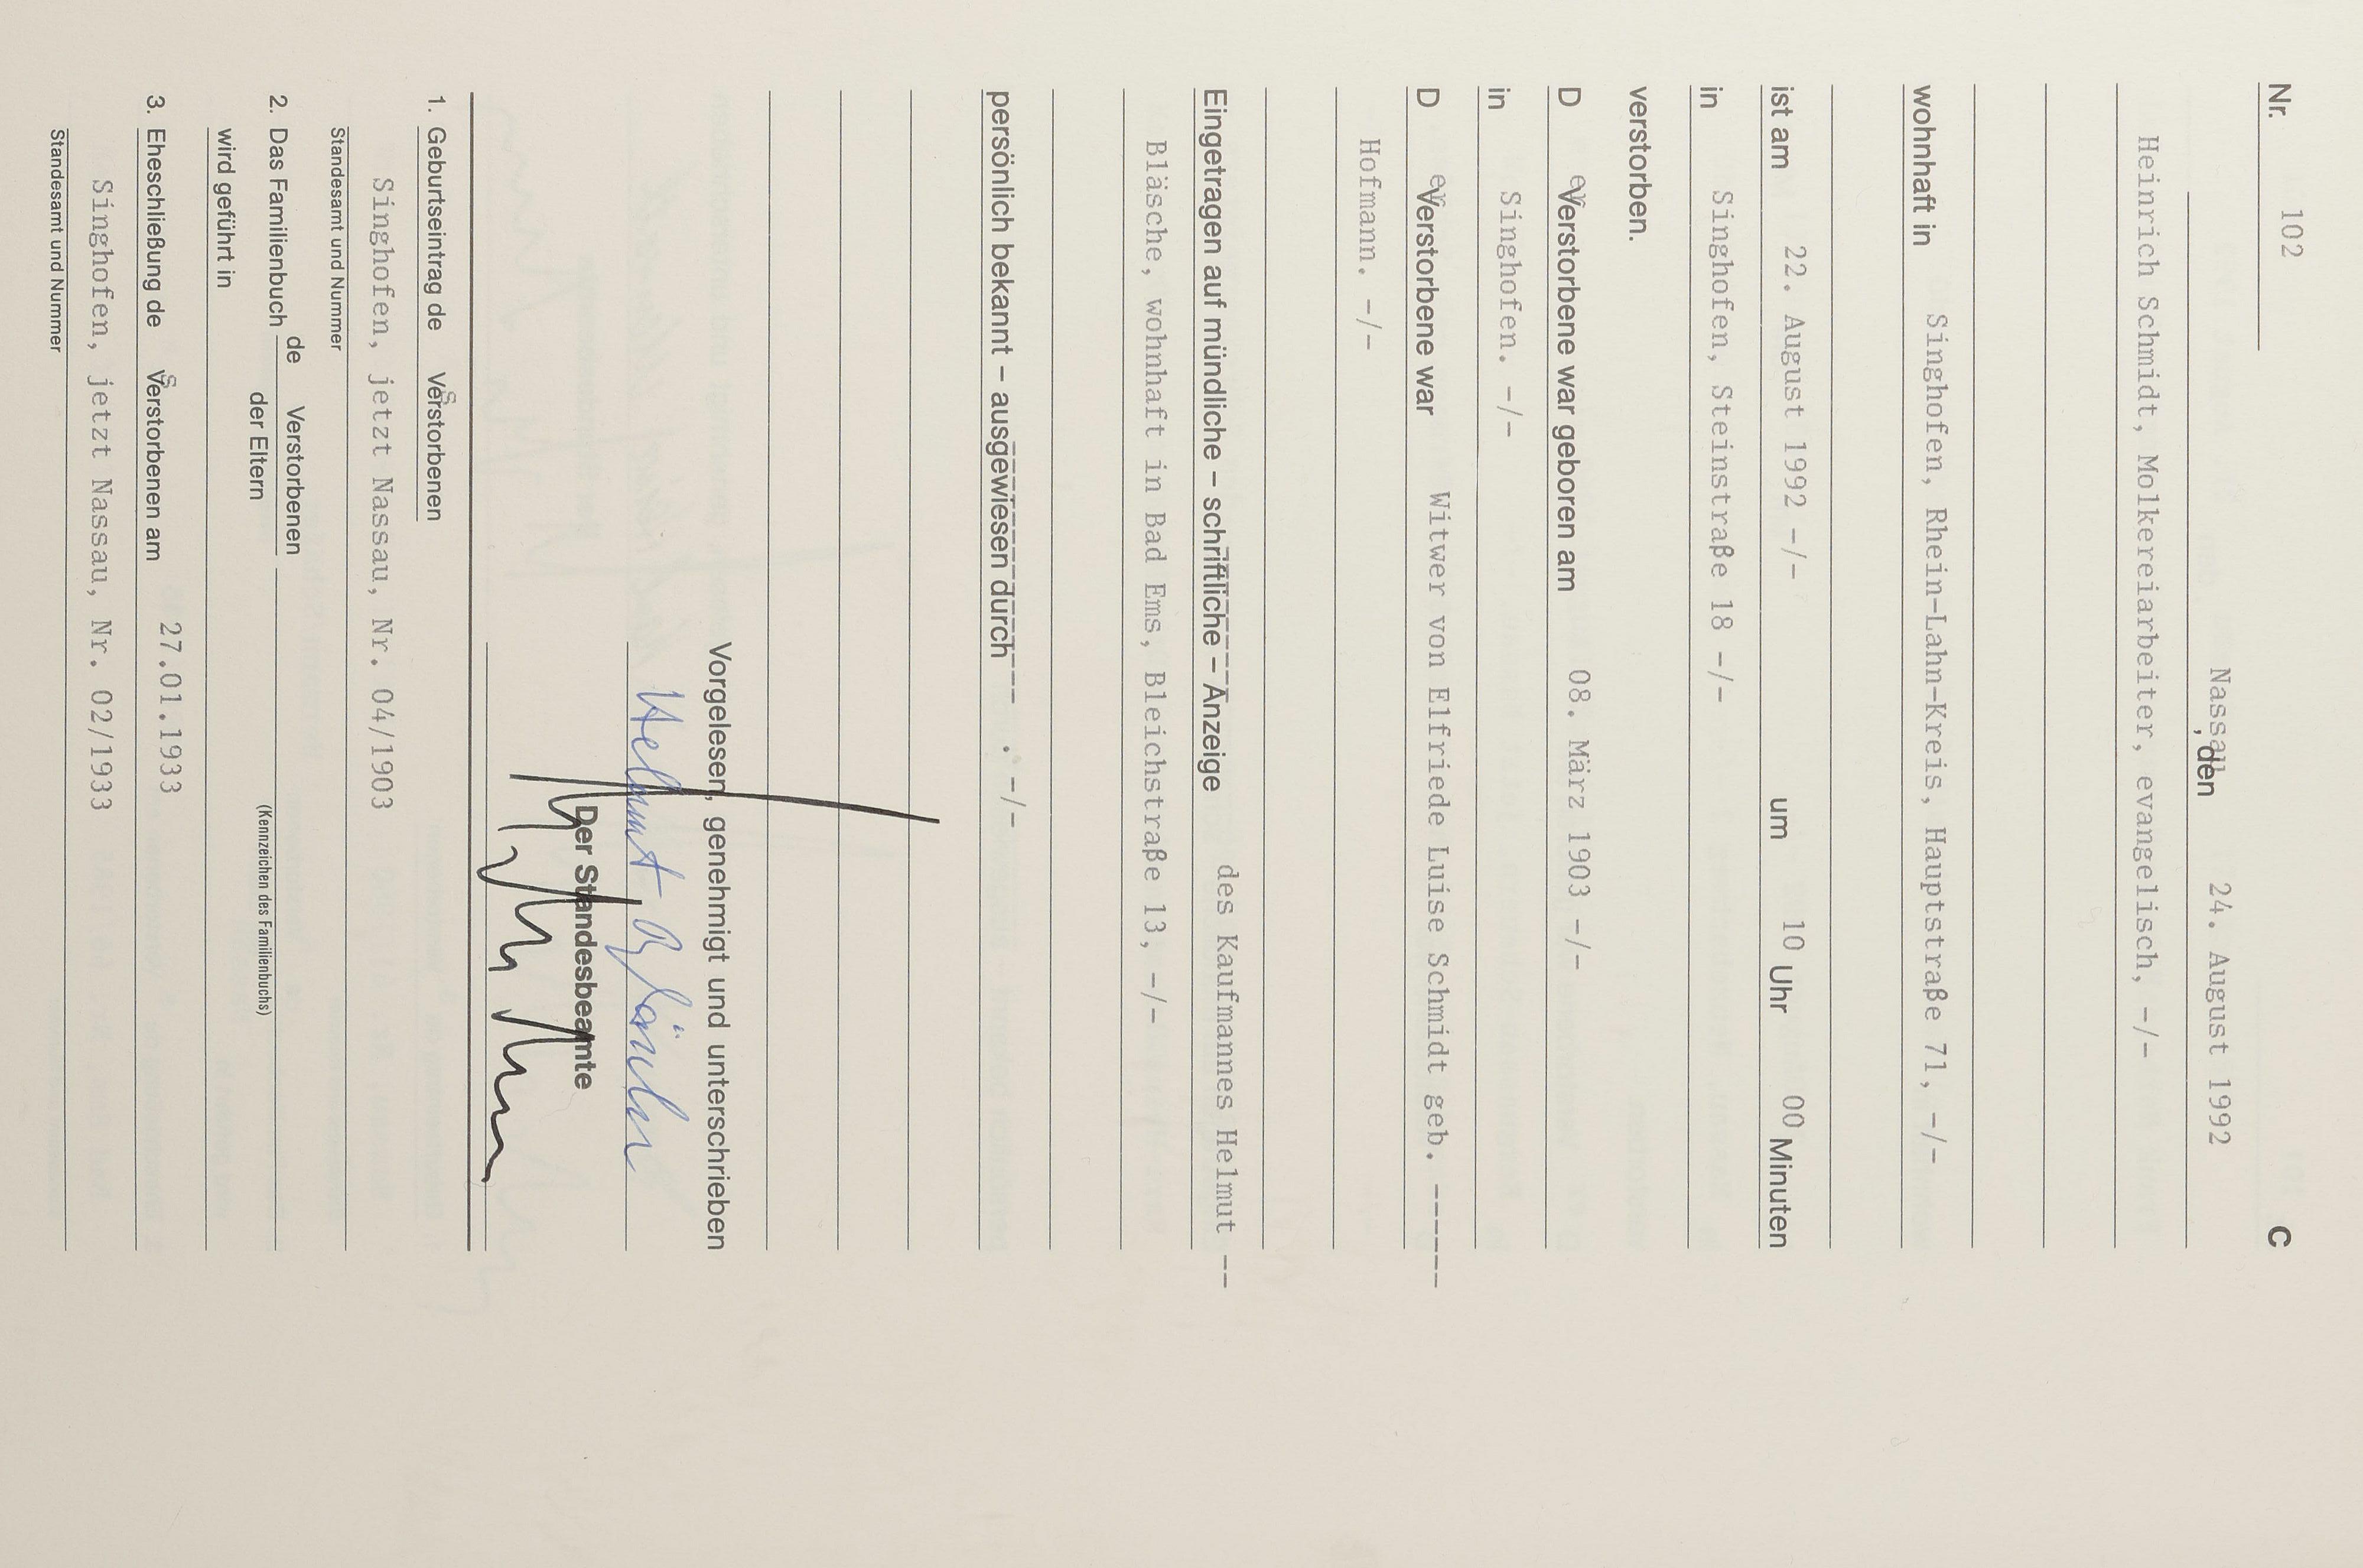 Nr. 102 C
Nassau , den 24. August 1992
Heinrich Schmidt, Molkereiarbeiter, evangelisch, -/-
wohnhaft in Singhofen, Rhein-Lahn-Kreis, Hauptstraße 71, -/-
ist am 22. August 1992 -/- um 10 Uhr 00 Minuten
in Singhofen, Steinstraße 18 -/-
verstorben.
D er Verstorbene war geboren am 08. März 1903 -/-
in Singhofen. -/-
D er Verstorbene war Witwer von Elfriede Luise Schmidt geb. ------
Hofmann. -/-
Eingetragen auf mündliche – schriftliche – Anzeige des Kaufmannes Helmut --
Bläsche, wohnhaft in Bad Ems, Bleichstraße 13, -/-
persönlich bekannt – ausgewiesen durch . -/-
Vorgelesen, genehmigt und unterschrieben
Helmut Bläsche
Der Standesbeamte
1. Geburtseintrag de s Verstorbenen
Singhofen, jetzt Nassau, Nr. 04/1903
Standesamt und Nummer
2. Das Familienbuch de Verstorbenen
der Eltern
wird geführt in (Kennzeichen des Familienbuchs)
3. Eheschließung de s Verstorbenen am 27.01.1933
Singhofen, jetzt Nassau, Nr. 02/1933
Standesamt und Nummer